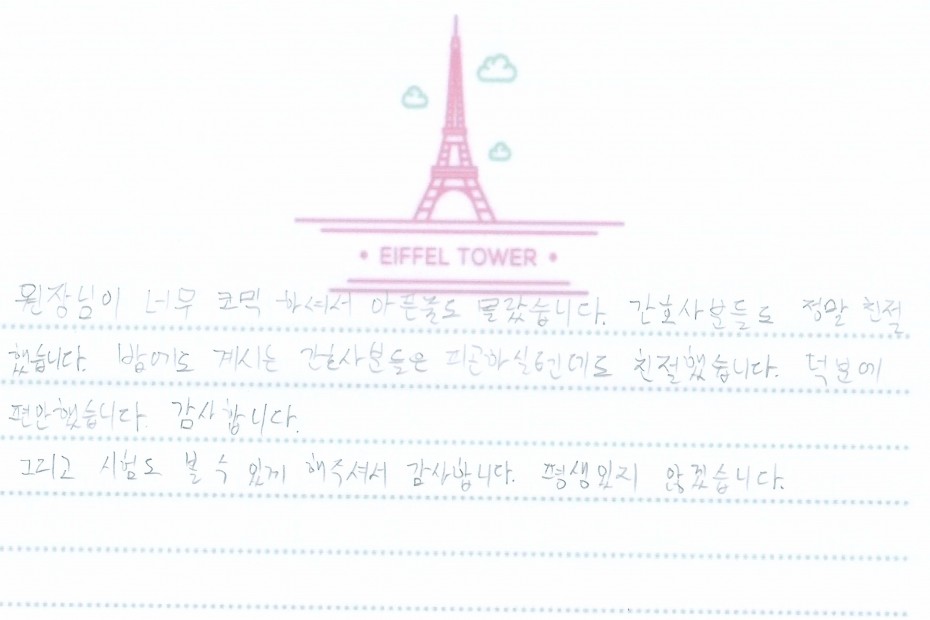 • EIFFEL TOWER •
원장님이 너무 코믹 하셔서 아픈줄도 몰랐습니다. 간호사분들도 정말 친절
했습니다. 밤에도 계시는 간호사분들은 피곤하실텐데도 친절했습니다. 덕분에
편안했습니다. 감사합니다.
그리고 시험도 볼 수 있게 해주셔서 감사합니다. 평생잊지 않겠습니다.